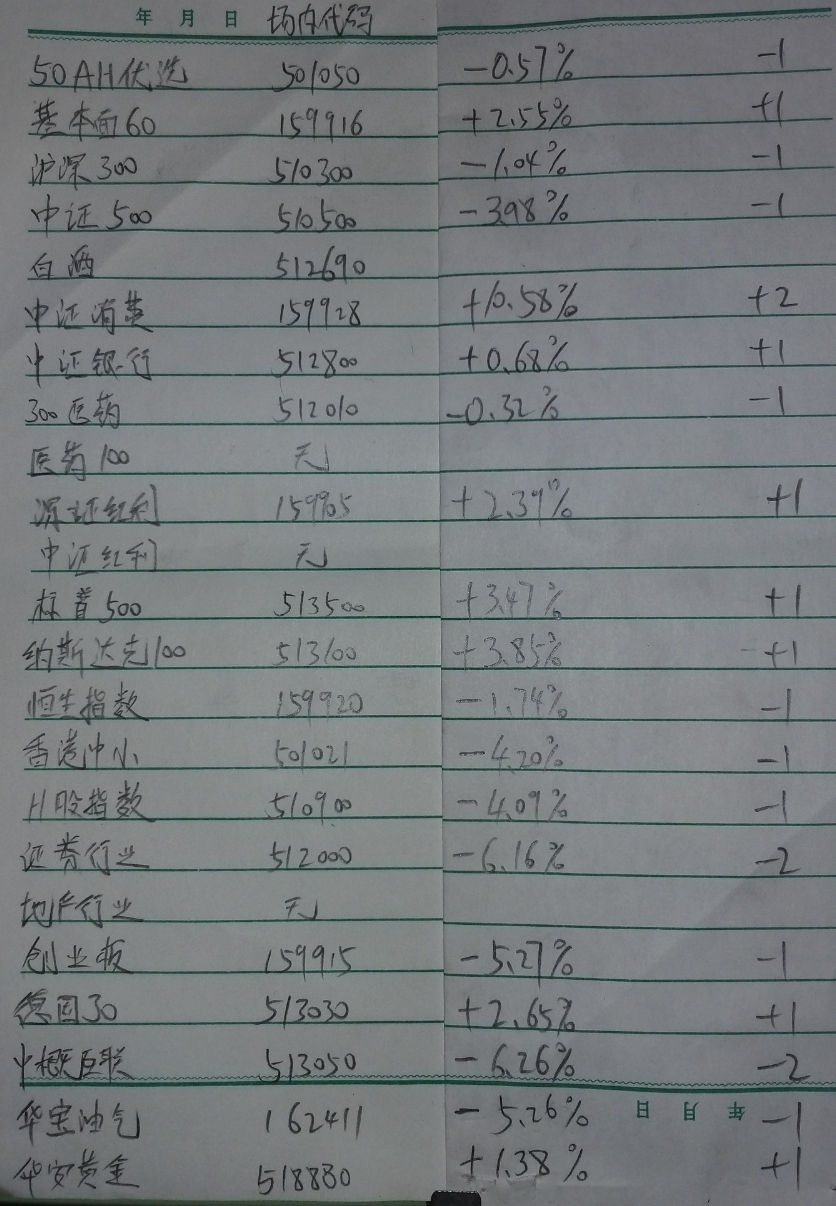 年 月 日 场内代码
50AH优选 501050 -0.57% -1
基本面60 159916 +2.55% +1
沪深300 510300 -1.04% -1
中证500 510500 -3.98% -1
白酒 512690
中证消费 159928 +10.58% +2
中证银行 512800 +0.68% +1
300医药 512010 -0.32% -1
医药100 无
深证红利 159905 +2.39% +1
中证红利 无
标普500 513500 +3.47% +1
纳斯达克100 513100 +3.85% +1
恒生指数 159920 -1.74% -1
香港中小 501021 -4.20% -1
H股指数 510900 -4.09% -1
证券行业 512000 -6.16% -2
地产行业 无
创业板 159915 -5.27% -1
德国30 513030 +2.65% +1
中概互联 513050 -6.26% -2
华宝油气 162411 -5.26% 日 月 年 -1
华安黄金 518880 +1.38% +1